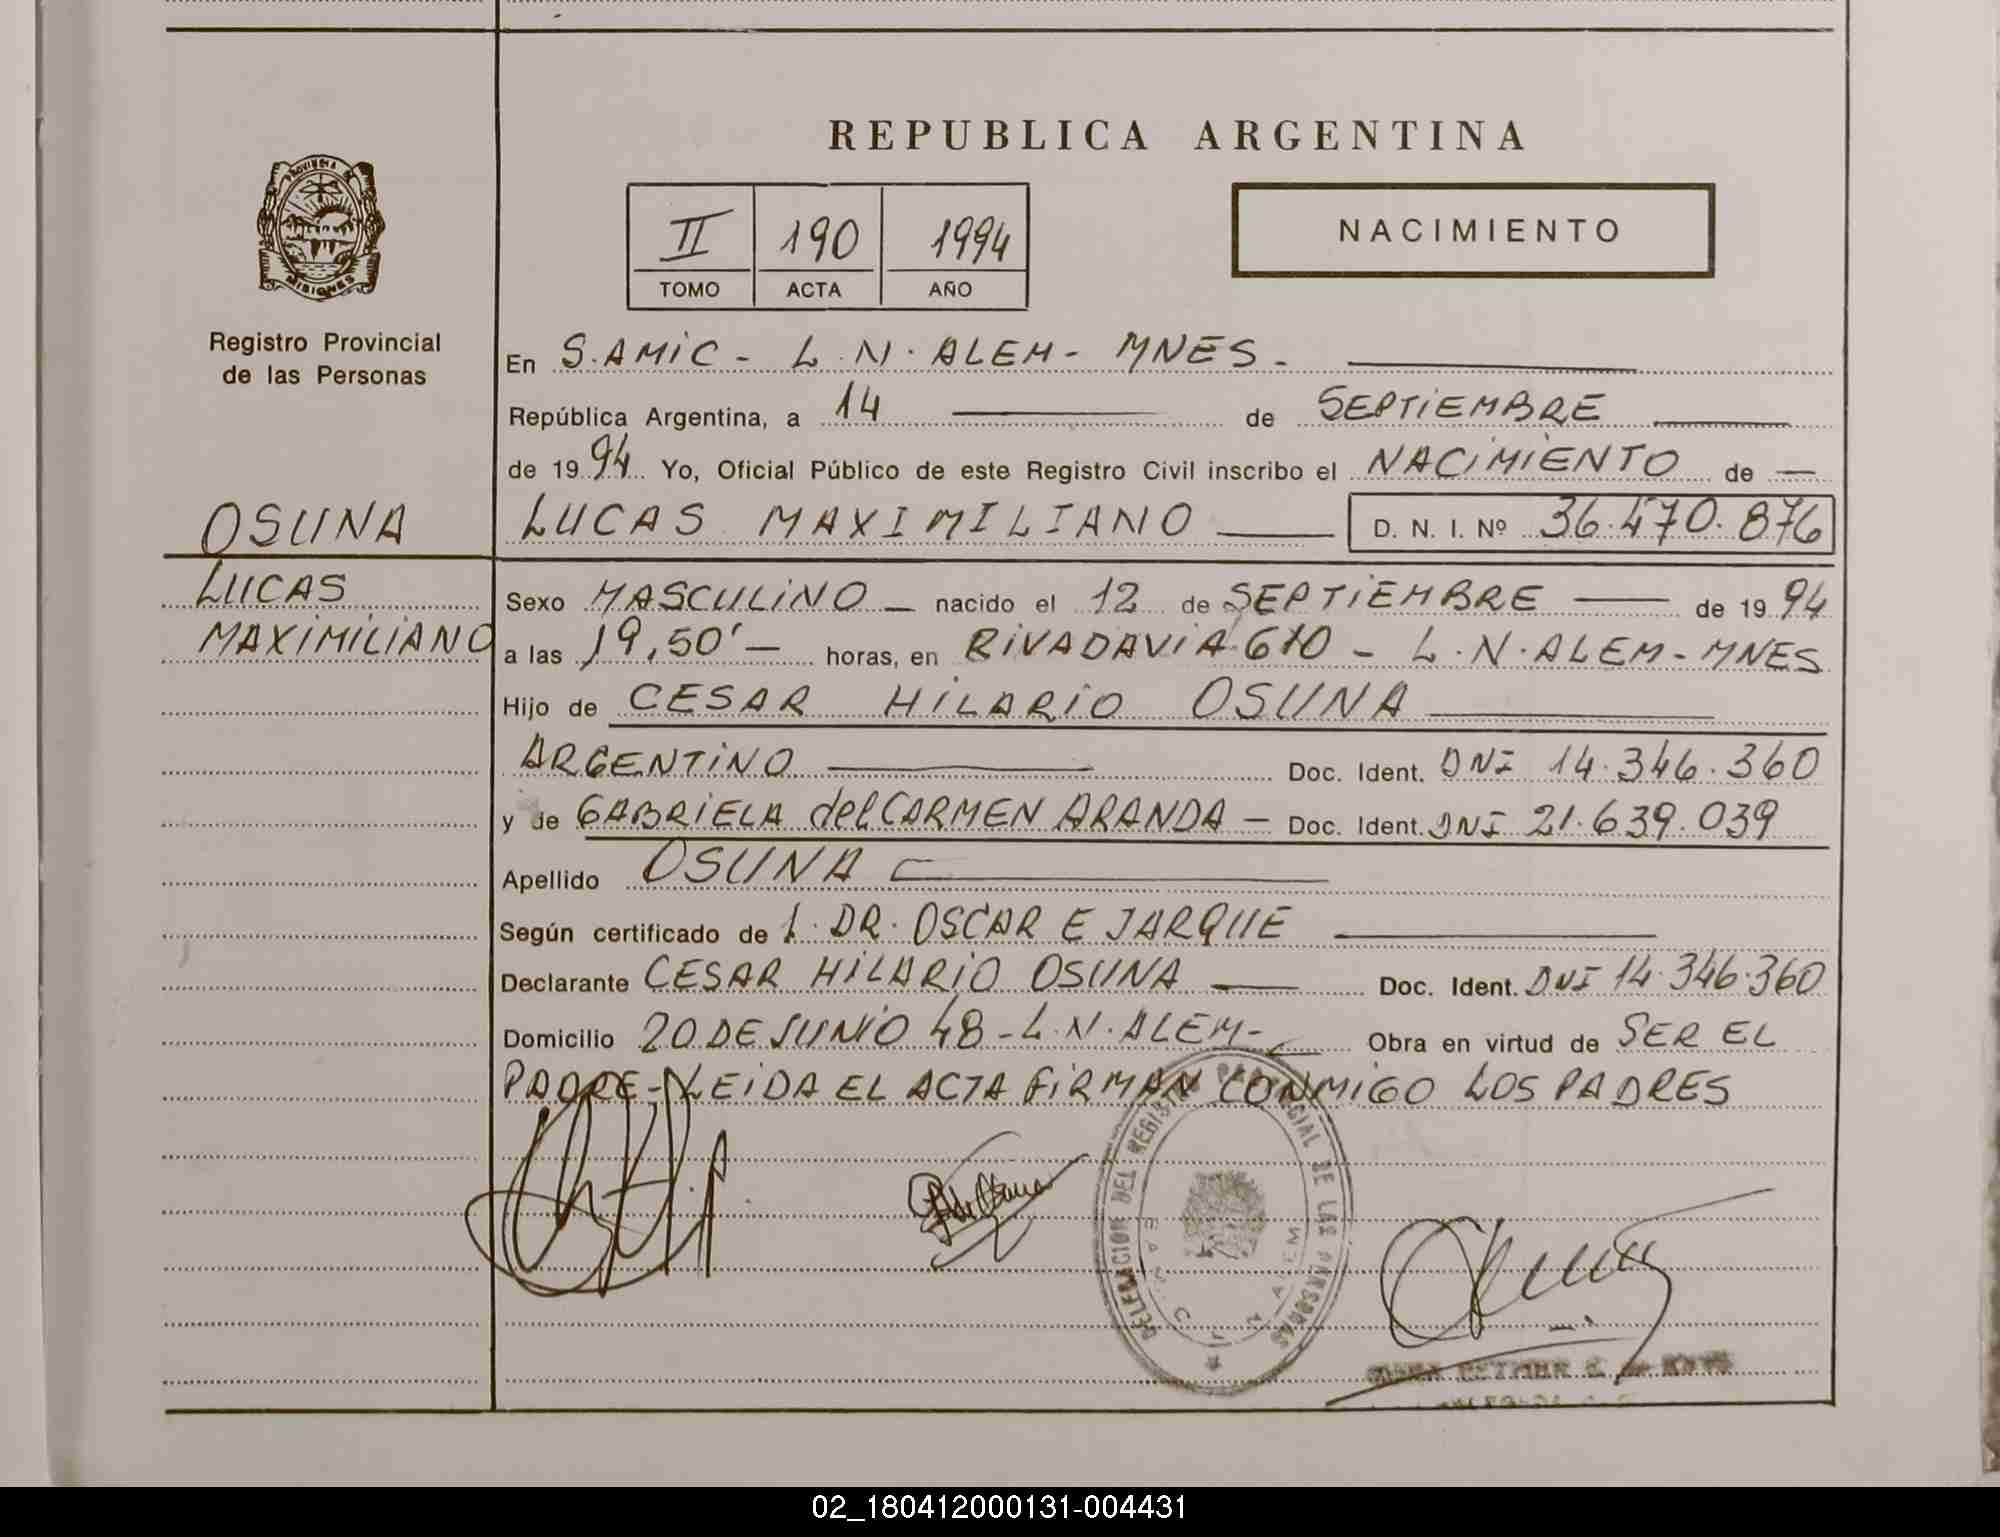 REPUBLICA ARGENTINA
PROVINCIA DE
MISIONES
Registro Provincial
de las Personas
II 190 1994
TOMO ACTA AÑO
NACIMIENTO
En S.AMIC - L.N.ALEM - MNES.-
República Argentina, a 14 de SEPTIEMBRE
de 1994 Yo, Oficial Público de este Registro Civil inscribo el NACIMIENTO de
OSUNA
LUCAS MAXIMILIANO D. N. I. Nº 36.470.876
LUCAS
MAXIMILIANO
Sexo MASCULINO nacido el 12 de SEPTIEMBRE de 1994
a las 19,50' horas, en RIVADAVIA 610 - L.N.ALEM - MNES
Hijo de CESAR HILARIO OSUNA
ARGENTINO Doc. Ident. DNI 14.346.360
y de GABRIELA del CARMEN ARANDA - Doc. Ident. DNI 21.639.039
Apellido OSUNA
Según certificado de L. DR. OSCAR E JARQUE
Declarante CESAR HILARIO OSUNA Doc. Ident. DNI 14.346.360
Domicilio 20 DE JUNIO 48 - L.N.ALEM - Obra en virtud de SER EL
PADRE - LEIDA EL ACTA FIRMAN CONMIGO LOS PADRES
DELEGACION DEL REGISTRO PROVINCIAL DE LAS PERSONAS
ALEM
02_180412000131-004431